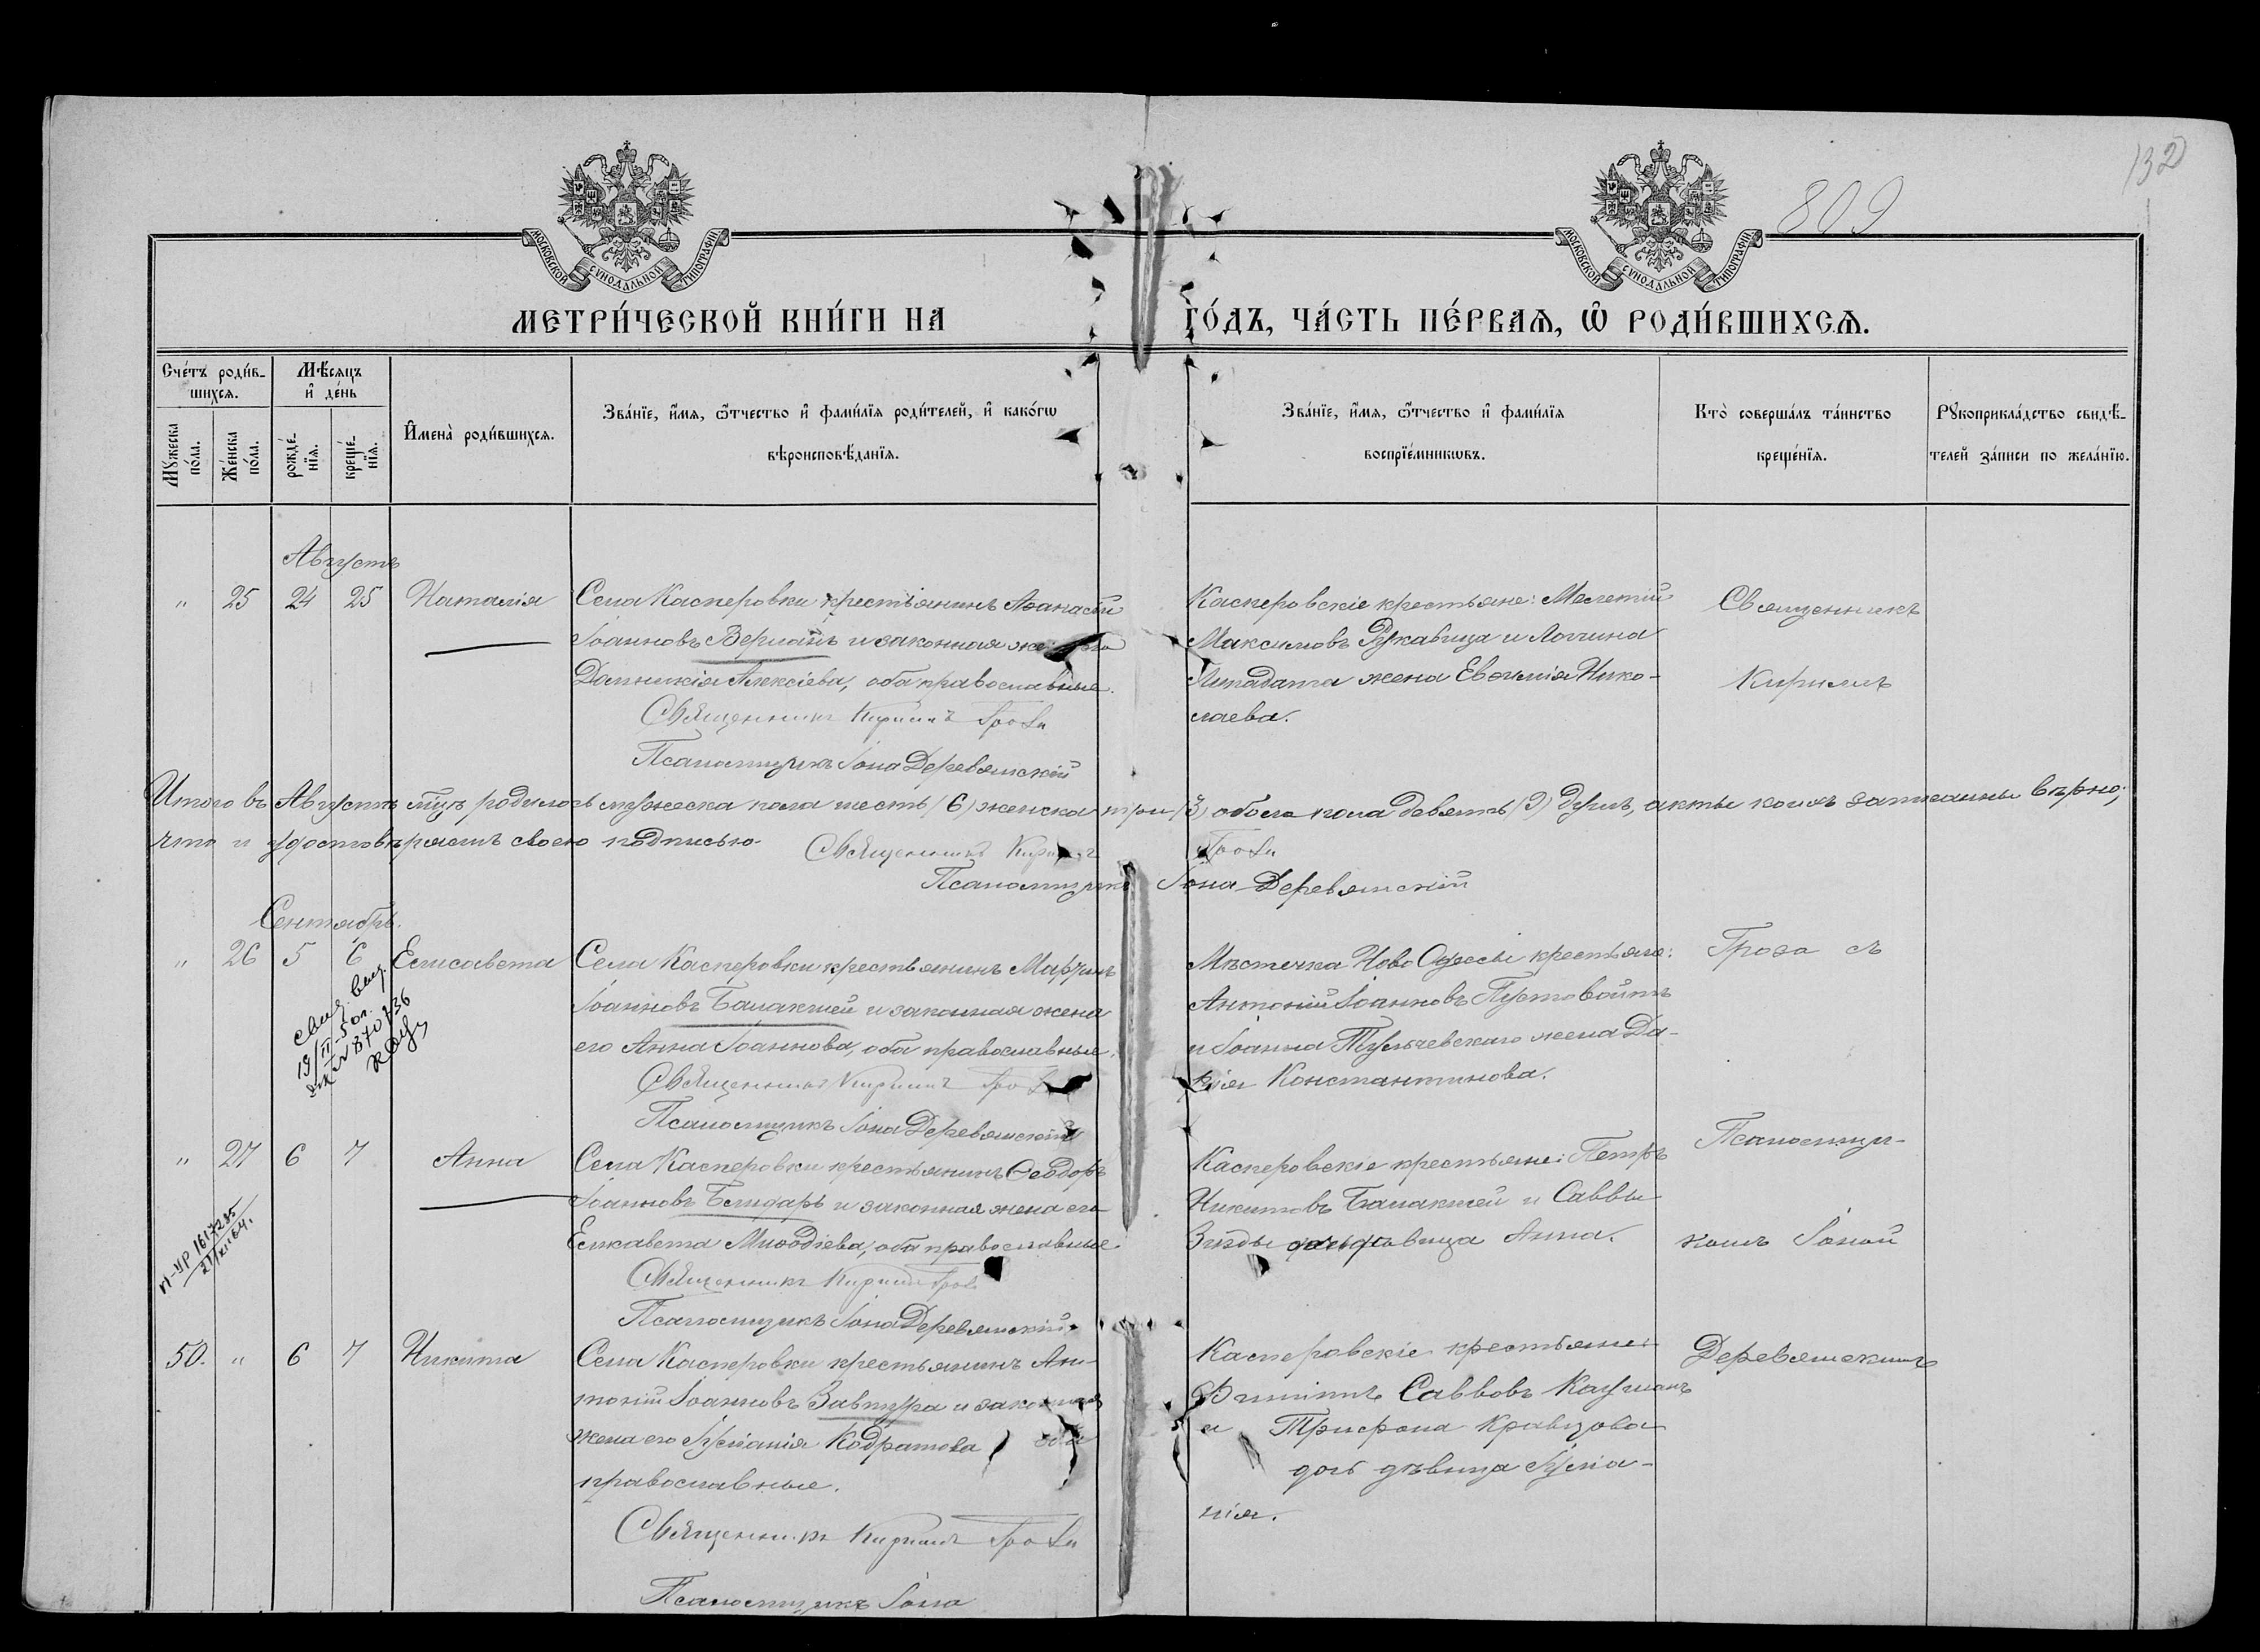 132
809
МОСКОВСКОЙ СѴНОДАЛЬНОЙ ТИПОГРАФІИ
МОСКОВСКОЙ СѴНОДАЛЬНОЙ ТИПОГРАФІИ
МЕТРИ́ЧЕСКОЙ КНИ́ГИ НА ГО́ДЪ, ЧА́СТЬ ПЕ́РВАѦ, Ѡ РОДИ́ВШИХСѦ.
Сче́тъ роди́в-
шихсѧ.
Мѣ́сѧцъ
и҆ де́нь
Мꙋ́жеска
по́ла.
Же́нска
по́ла.
рожде́-
нїѧ.
креще́-
нїѧ.
И҆мена̀ роди́вшихсѧ.
Зва́нїе, и҆́мѧ, ѻ҆́тчество и҆ фами́лїѧ роди́телей, и҆ како́гѡ
вѣроисповѣ́данїѧ.
Зва́нїе, и҆́мѧ, ѻ҆́тчество и҆ фами́лїѧ
воспрїе́мникѡвъ.
Кто̀ соверша́лъ та́инство
креще́нїѧ.
Рꙋкоприкла́дство свидѣ́-
телей за́писи по жела́нїю.
Августъ
" 25 24 25 Наталія
Села Касперовки крестьянинъ Аѳанасій
Іоанновъ Верланъ и законная жена его
Домникія Алексіева, оба православные.
Священникъ Кириллъ Гроза
Псаломщикъ Іона Деревянскій
Касперовскіе крестьяне: Мелетій
Максимовъ Рукавица и Логгина
жена Евѳимія Нико-
лаева.
Священникъ
Кириллъ
Итого въ Августѣ мцѣ родилось мужеска пола шесть (6) женска три (3) обоего пола девять (9) душъ, акты коихъ записанны вѣрно;
что и удостовѣряемъ своею подписью. Священникъ Кириллъ Гроза
Псаломщикъ Іона Деревянскій
Сентябрь.
" 26 5 6 Елисавета
Села Касперовки крестьянинъ
Іоанновъ Балакшей и законная жена
его Анна Іоаннова, оба православные.
Священникъ Кириллъ Гроза
Псаломщикъ Іона Деревянскій
Мѣстечка Ново Одессы крестьяне:
Антоній Іоанновъ Пустовойтъ
и Іоанна Тульчевскаго жена Да-
рія Константинова.
Гроза съ
" 27 6 7 Анна
Села Касперовки крестьянинъ Ѳеодоръ
Іоанновъ Бендарь и законная жена его
Елисавета Меѳодіева, оба православные.
Священникъ Кириллъ Гроза
Псаломщикъ Іона Деревянскій.
Касперовскіе крестьяне: Петръ
Никитовъ Балакшей и Саввы
дѣвица Анна.
Псаломщи-
комъ Іоной
50. " 6 7 Никита
Села Касперовки крестьянинъ Ан-
тоній Іоанновъ Завтура и законная
жена его Іуліанія Кодратова оба
православные.
Священникъ Кириллъ Гроза
Псаломщикъ Іона
Касперовскіе крестьяне:
Филиппъ Саввовъ Кауланъ
и Трифона Кравцова
дочь дѣвица Іуліа-
нія.
Деревянскимъ